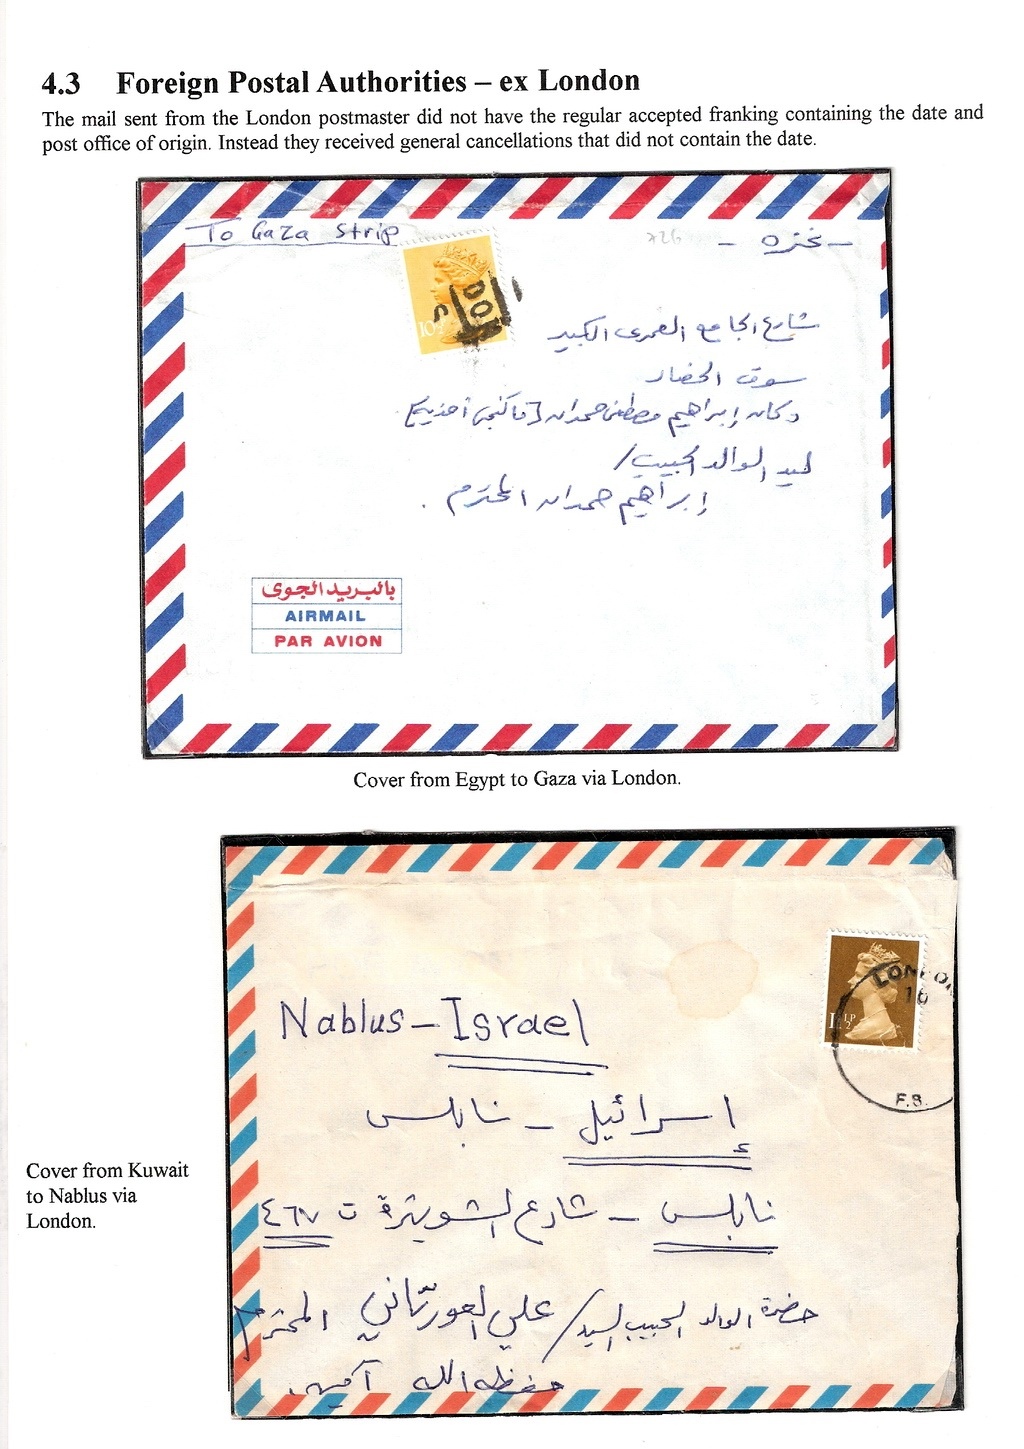 4.3 Foreign Postal Authorities – ex London
The mail sent from the London postmaster did not have the regular accepted franking containing the date and
post office of origin. Instead they received general cancellations that did not contain the date.
To Gaza Strip
- غزه -
شارع الجامع العمرى الكبير
سوق الخضار
دكان إبراهيم مصطفى حمدان
ليد الوالد الحبيب /
إبراهيم حمدان المحترم .
بالبريد الجوى
AIRMAIL
PAR AVION
Cover from Egypt to Gaza via London.
LONDON
10
F.B.
Nablus – Israel
إسرائيل – نابلس
نابلس – شارع الشويترة ت ٤٦٧
حضرة الوالد الحبيب السيد / علي العورتاني المحترم
حفظه الله آمين.
Cover from Kuwait
to Nablus via
London.